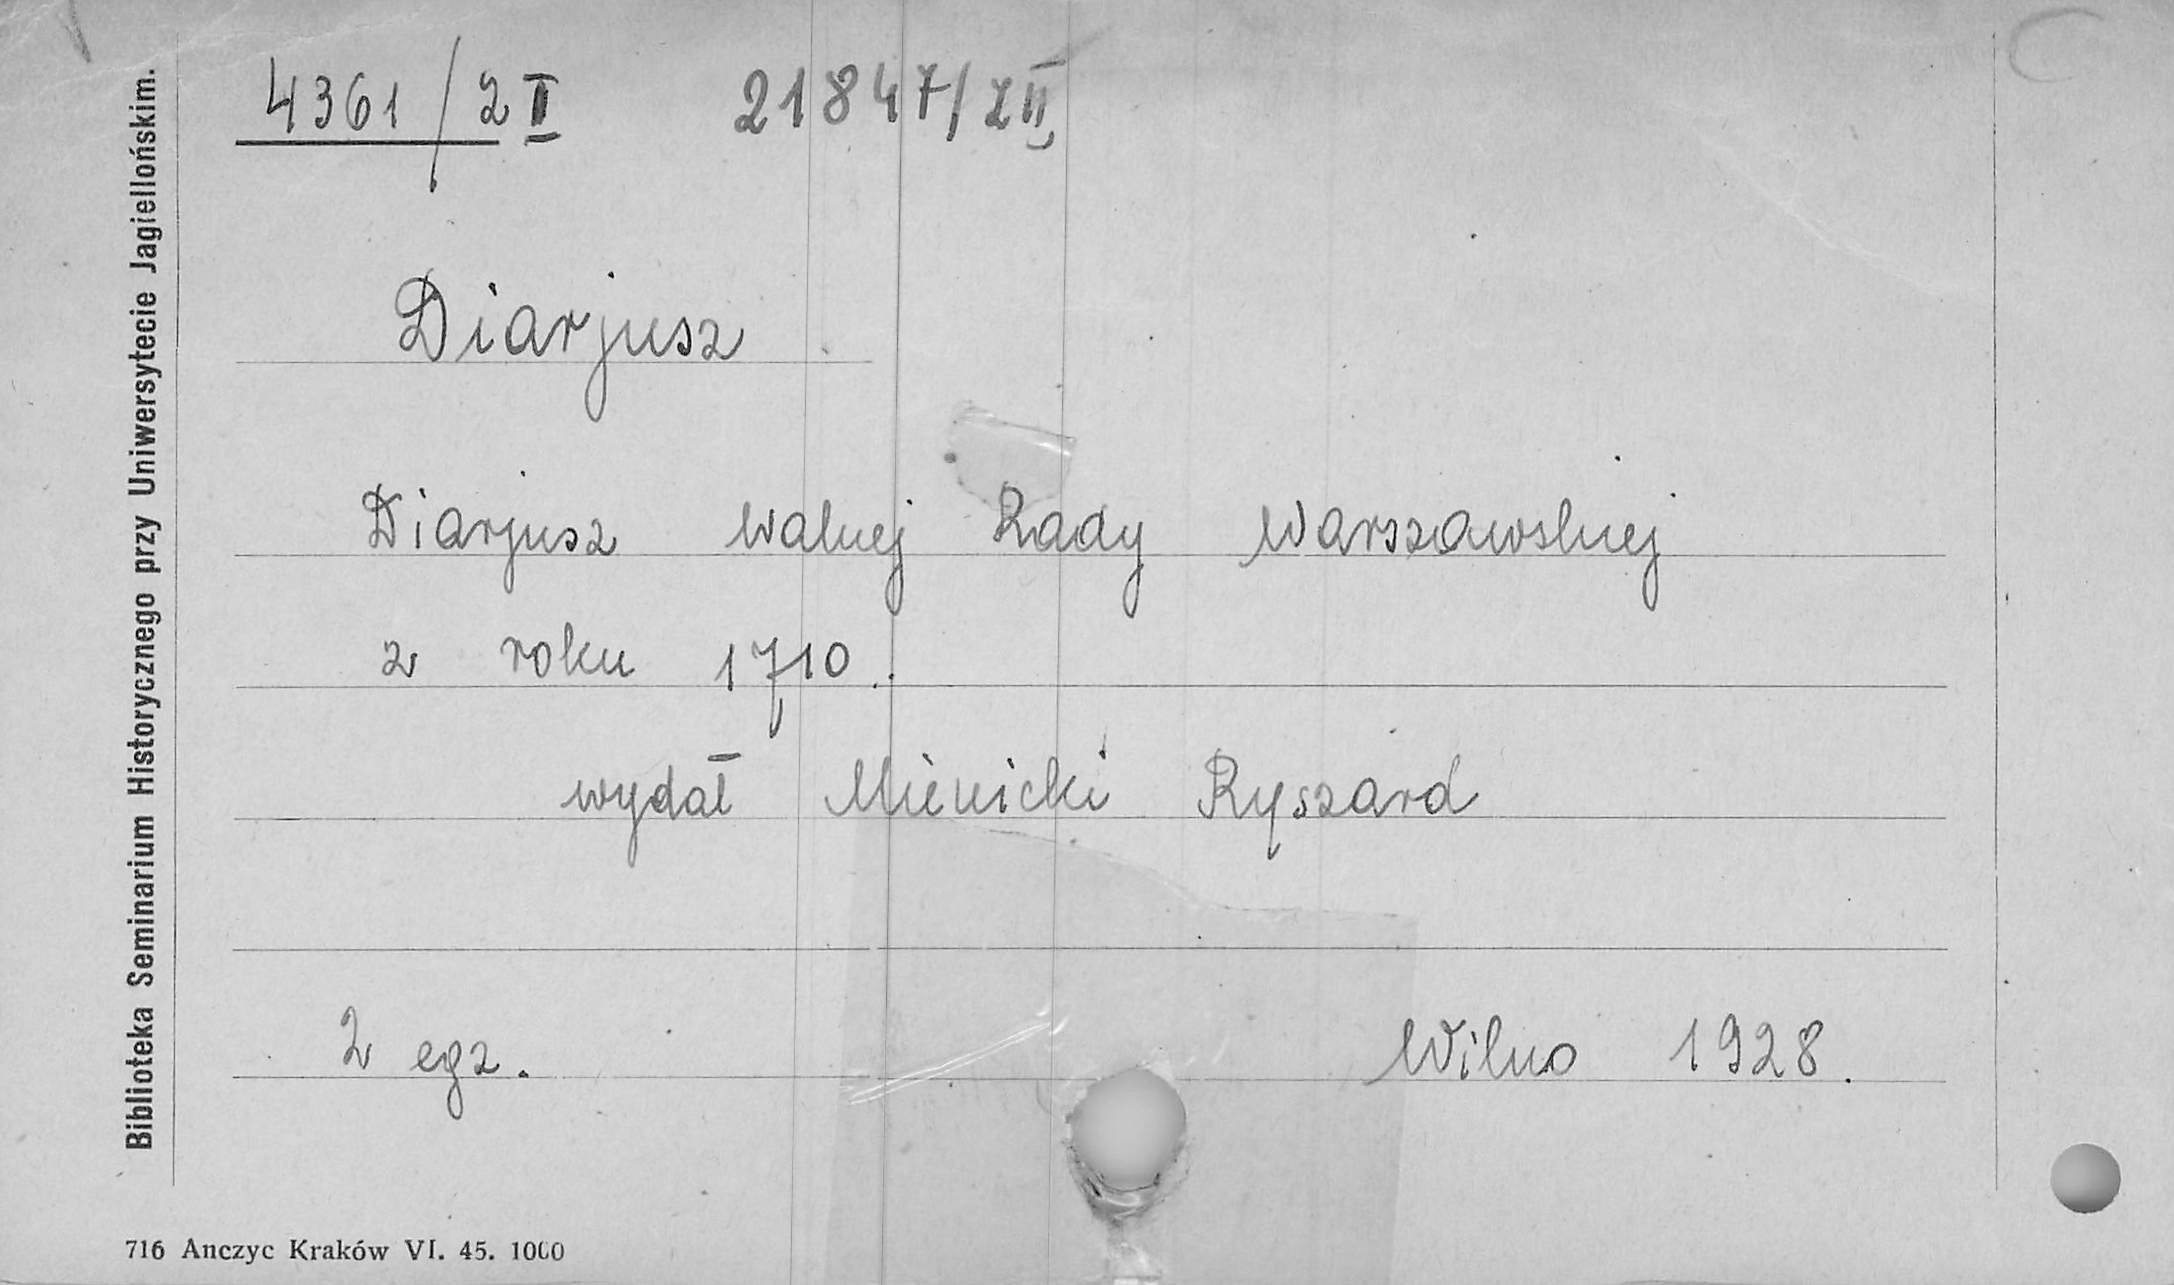 4361/2 II 21847/ZII
Diarjusz
Diarjusz Walnej Rady Warszawskiej
z roku 1710.
wydał Mienicki Ryszard
2 egz. Wilno 1928.
Biblioteka Seminarium Historycznego przy Uniwersytecie Jagiellońskim.
716 Anczyc Kraków VI. 45. 1000